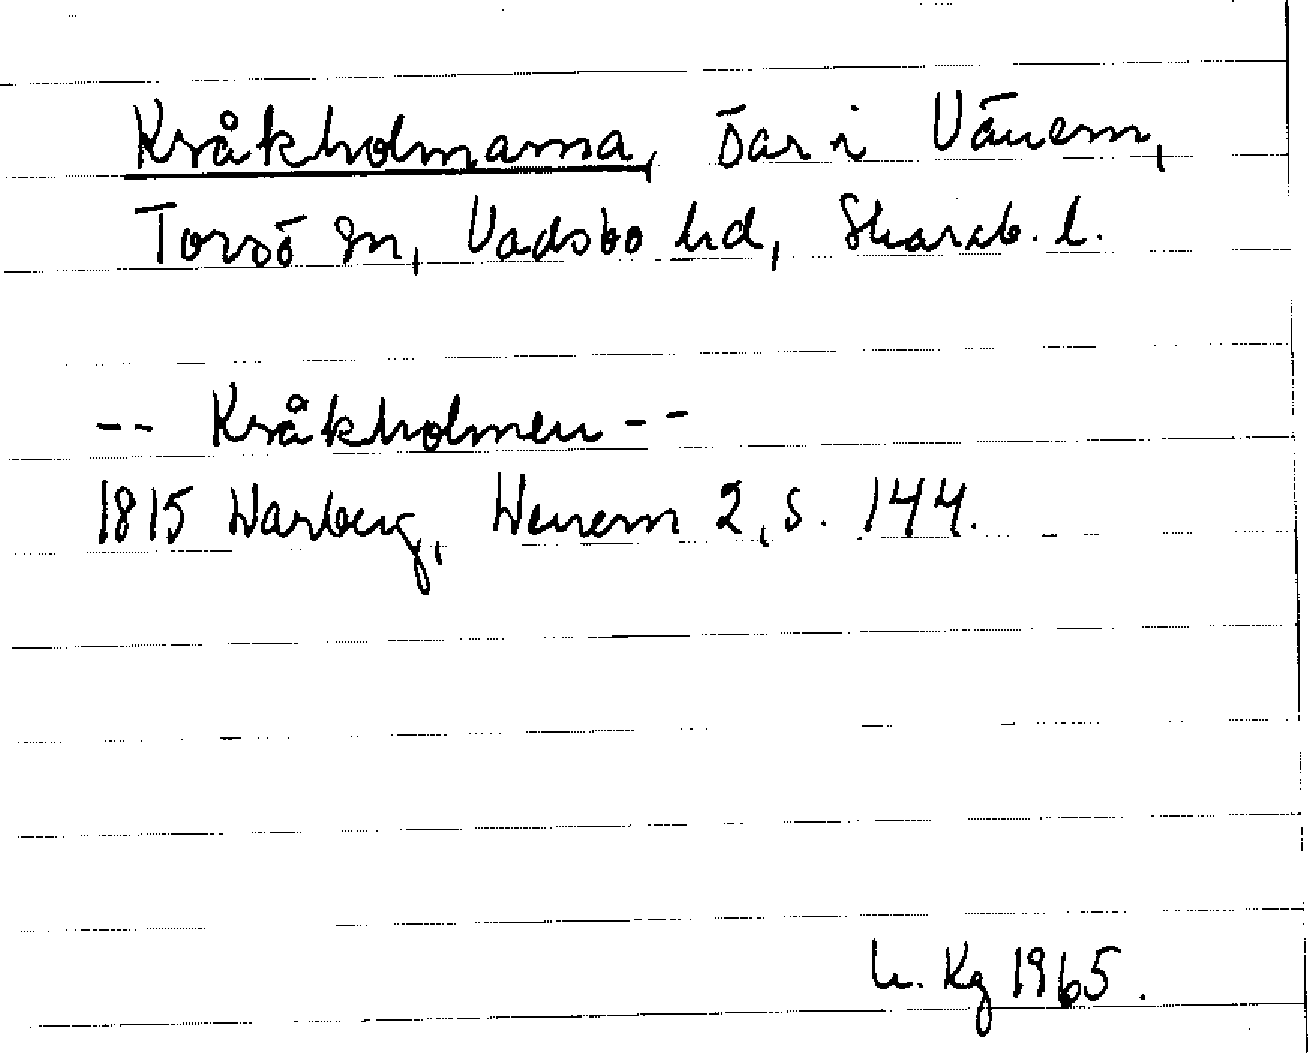 Kråkholmarna, öar i Vänern,
Torsö sn, Vadsbo hd, Skarab. l.
-- Kråkholmen --
1815 Warberg, Wenern 2, s. 144.
Kg 1965.